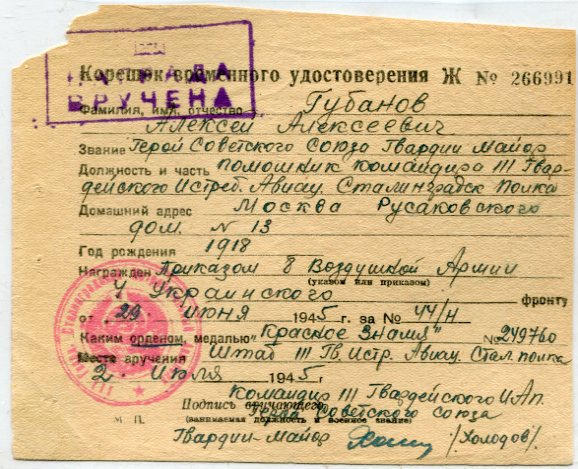 НАГРАДА
ВРУЧЕНА
Корешок временного удостоверения Ж № 266991
Фамилия, имя, отчество Губанов
Алексей Алексеевич
Звание Герой Советского Союза Гвардии Майор
Должность и часть помошник командира III Гвар-
дейского Истреб. Авиац. Сталинградск Полка
Домашний адрес Москва Русаковского
дом. N 13
Год рождения 1918
Награжден Приказом 8 Воздушной Армии
(указом или приказом)
4 Украинского фронту
от 29 июня 1945 г. за № 44/н
Каким орденом, медалью "Красное Знамя" № 249760
Место вручения Штаб III Гв. Истр. Авиац. Стал. полка
2. Июля 1945 г
Командир III Гвардейского И.Ап.
Подпись вручающего
Советского Союза
М. П. (занимаемая должность и военное звание)
Гвардии-Майор /Холодов/